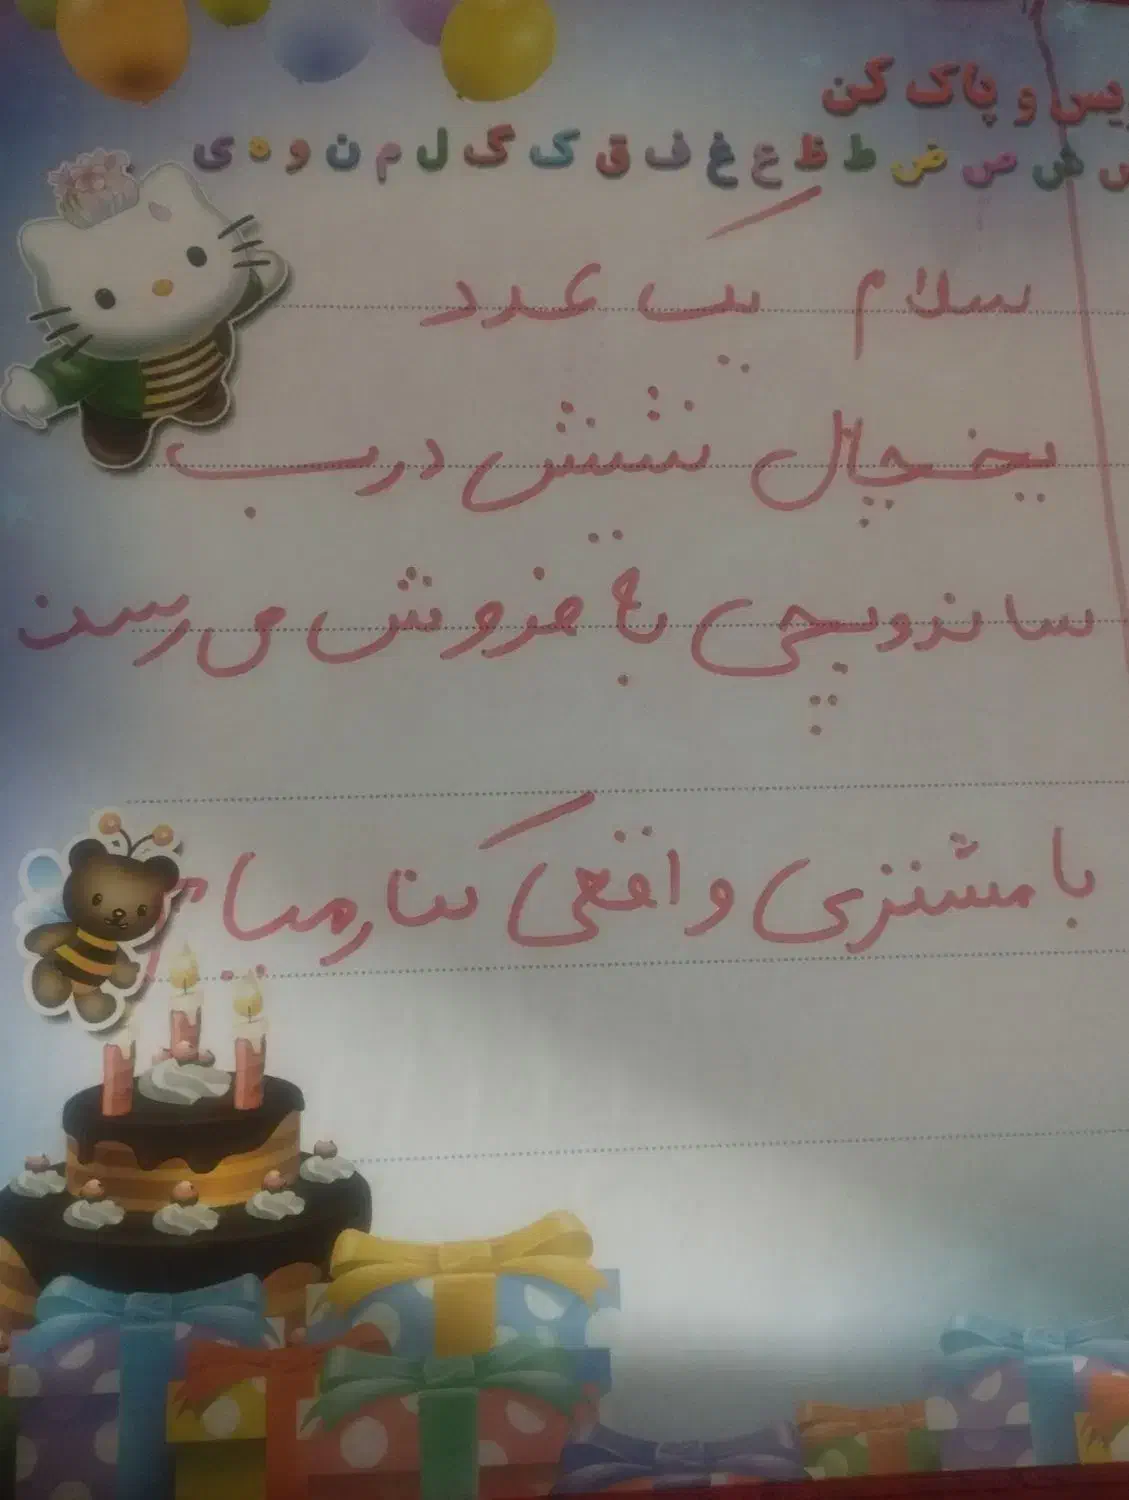 یس و پاک کن
ش ص ض ط ظ ع غ ف ق ک گ ل م ن و ه ی
سلام یک عدد
یخچال شیش درب
ساندویچی به فروش می رسد
با مشتری واقعی کنار میام